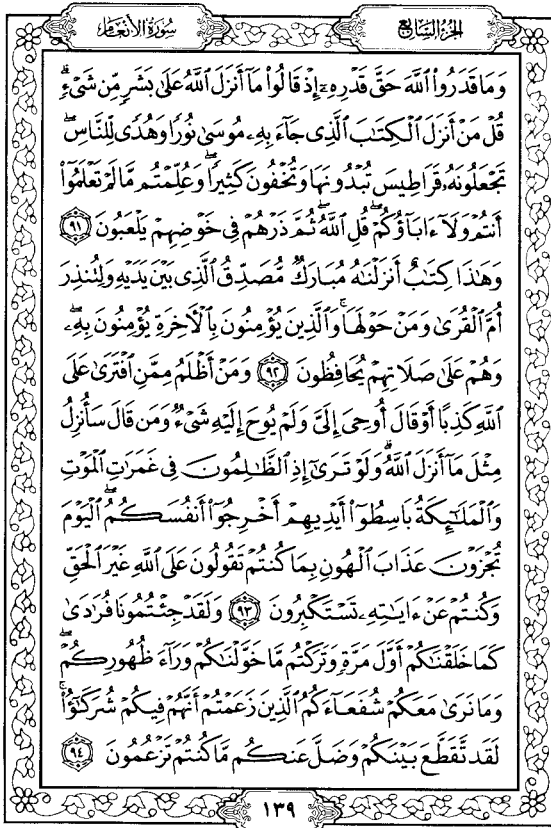 سُورَةُ الأَنْعَامِ
الجُزْءُ السَّابِعُ
وَمَا قَدَرُوا۟ ٱللَّهَ حَقَّ قَدْرِهِۦٓ إِذْ قَالُوا۟ مَآ أَنزَلَ ٱللَّهُ عَلَىٰ بَشَرٍ مِّن شَىْءٍ ۗ
قُلْ مَنْ أَنزَلَ ٱلْكِتَـٰبَ ٱلَّذِى جَآءَ بِهِۦ مُوسَىٰ نُورًا وَهُدًى لِّلنَّاسِ ۖ
تَجْعَلُونَهُۥ قَرَاطِيسَ تُبْدُونَهَا وَتُخْفُونَ كَثِيرًا ۖ وَعُلِّمْتُم مَّا لَمْ تَعْلَمُوٓا۟
أَنتُمْ وَلَآ ءَابَآؤُكُمْ ۖ قُلِ ٱللَّهُ ۖ ثُمَّ ذَرْهُمْ فِى خَوْضِهِمْ يَلْعَبُونَ ٩١
وَهَـٰذَا كِتَـٰبٌ أَنزَلْنَـٰهُ مُبَارَكٌ مُّصَدِّقُ ٱلَّذِى بَيْنَ يَدَيْهِ وَلِتُنذِرَ
أُمَّ ٱلْقُرَىٰ وَمَنْ حَوْلَهَا ۚ وَٱلَّذِينَ يُؤْمِنُونَ بِٱلْـَٔاخِرَةِ يُؤْمِنُونَ بِهِۦ ۖ
وَهُمْ عَلَىٰ صَلَاتِهِمْ يُحَافِظُونَ ٩٢ وَمَنْ أَظْلَمُ مِمَّنِ ٱفْتَرَىٰ عَلَى
ٱللَّهِ كَذِبًا أَوْ قَالَ أُوحِىَ إِلَىَّ وَلَمْ يُوحَ إِلَيْهِ شَىْءٌ وَمَن قَالَ سَأُنزِلُ
مِثْلَ مَآ أَنزَلَ ٱللَّهُ ۗ وَلَوْ تَرَىٰٓ إِذِ ٱلظَّـٰلِمُونَ فِى غَمَرَٰتِ ٱلْمَوْتِ
وَٱلْمَلَـٰٓئِكَةُ بَاسِطُوٓا۟ أَيْدِيهِمْ أَخْرِجُوٓا۟ أَنفُسَكُمُ ۖ ٱلْيَوْمَ
تُجْزَوْنَ عَذَابَ ٱلْهُونِ بِمَا كُنتُمْ تَقُولُونَ عَلَى ٱللَّهِ غَيْرَ ٱلْحَقِّ
وَكُنتُمْ عَنْ ءَايَـٰتِهِۦ تَسْتَكْبِرُونَ ٩٣ وَلَقَدْ جِئْتُمُونَا فُرَٰدَىٰ
كَمَا خَلَقْنَـٰكُمْ أَوَّلَ مَرَّةٍ وَتَرَكْتُم مَّا خَوَّلْنَـٰكُمْ وَرَآءَ ظُهُورِكُمْ ۖ
وَمَا نَرَىٰ مَعَكُمْ شُفَعَآءَكُمُ ٱلَّذِينَ زَعَمْتُمْ أَنَّهُمْ فِيكُمْ شُرَكَـٰٓؤُا۟ ۚ
لَقَد تَّقَطَّعَ بَيْنَكُمْ وَضَلَّ عَنكُم مَّا كُنتُمْ تَزْعُمُونَ ٩٤
١٣٩